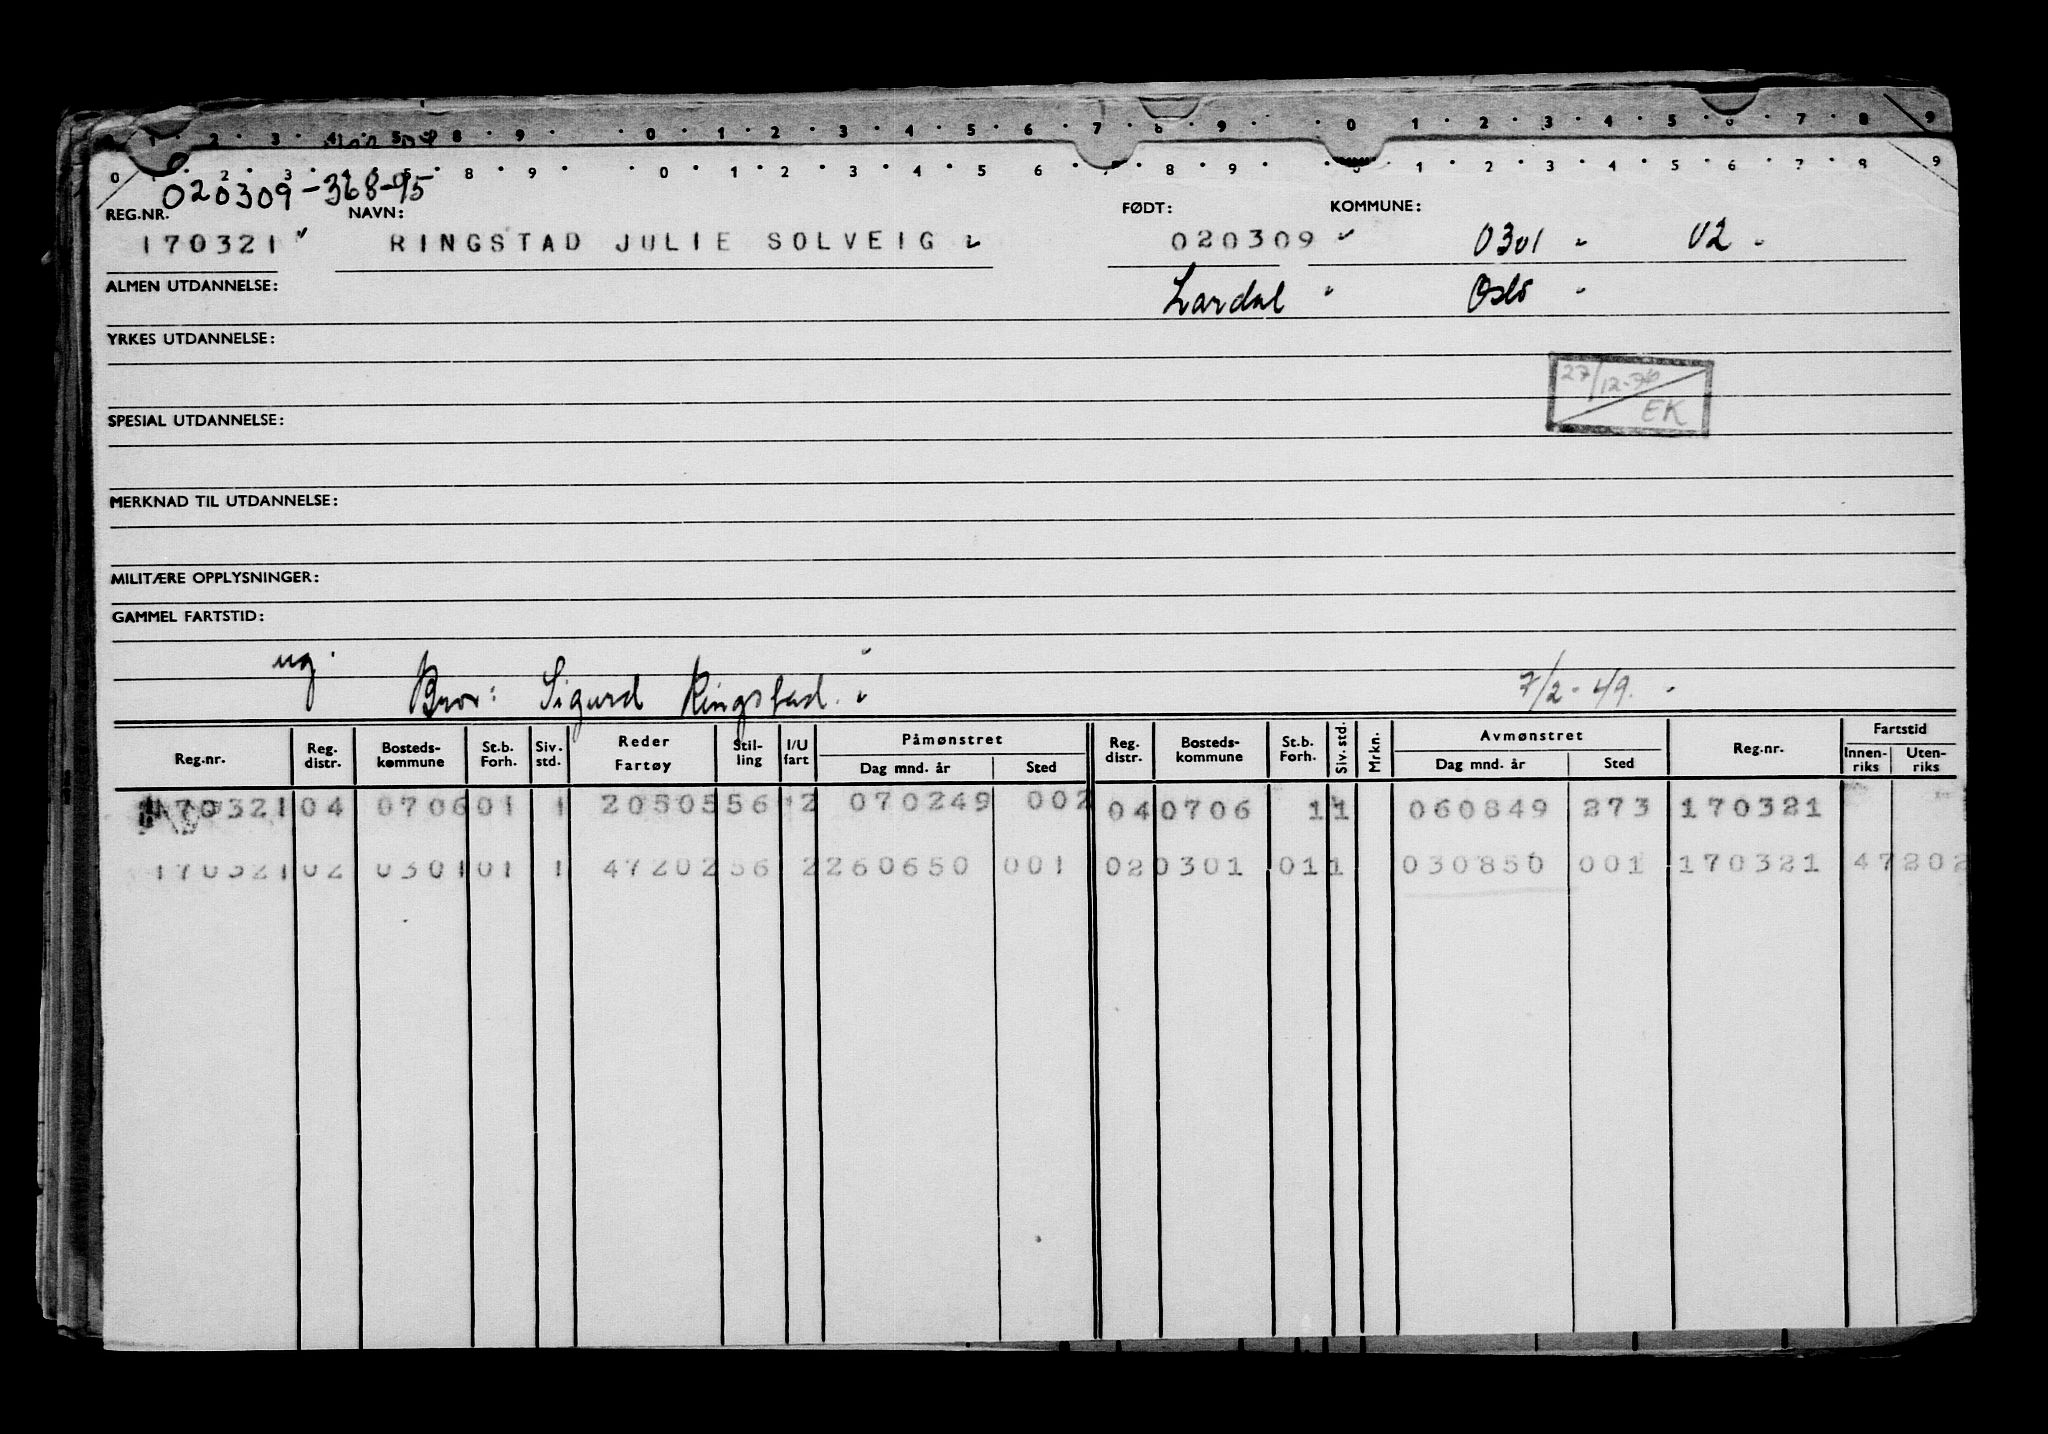 0 1 2 3 4 5 8 9 0 1 2 3 4 5 6 7 8 9 0 1 2 3 4 5 6 7 8 9
0 1 2 3 8 9 0 1 2 3 4 5 6 7 8 9 0 1 2 3 4 5 6 7 8 9
020309-368-95
REG.NR. NAVN: FØDT: KOMMUNE:
170321 RINGSTAD JULIE SOLVEIG 020309 0301 02
ALMEN UTDANNELSE: Lardal Oslo
YRKES UTDANNELSE:
27/12-76
EK
SPESIAL UTDANNELSE:
MERKNAD TIL UTDANNELSE:
MILITÆRE OPPLYSNINGER:
GAMMEL FARTSTID:
ug.
Bror: Sigurd Ringstad. 7/2-49.
Reg.nr. Reg. distr. Bosteds-kommune St.b. Forh. Siv. std. Reder Fartøy Stil-ling I/U fart Påmønstret Dag mnd. år Sted Reg. distr. Bosteds-kommune St.b. Forh. Siv. std. Mrkn. Avmønstret Dag mnd. år Sted Reg.nr. Fartstid Innen-riks Uten-riks
170321 04 0706 01 1 20505 56 2 070249 002 04 0706 1 1 060849 273 170321
170321 02 0301 01 1 47202 56 2 260650 001 02 0301 01 1 030850 001 170321 47202